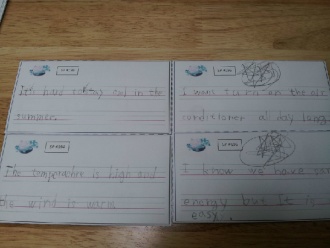 It's hard        in the
summer.
I want turn on the air
conditioner al day long
The temperature is high and
the wind is warm
I know we have
energy but It is
easy.